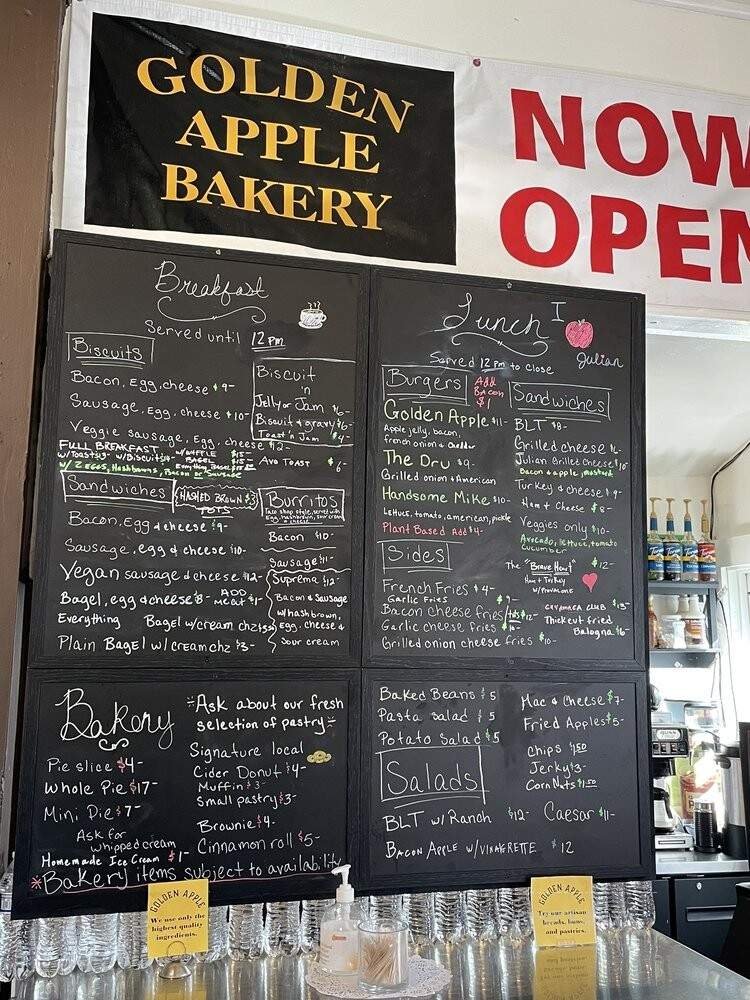 GOLDEN
APPLE
BAKERY
NOW
OPEN
Breakfast
Served until 12 pm
Biscuits
Bacon, Egg, cheese $9-
Sausage, Egg, cheese $10-
Veggie sausage, Egg, cheese $12-
Biscuit
'n
Jelly or Jam $6-
Biscuit & gravy $6-
Toast 'n Jam $4-
FULL BREAKFAST
w/ 2 EGGS, Hashbrowns, Bacon or Sausage
Avo Toast $6-
Sandwiches
HASHED BROWN $3
POTS
Bacon, Egg & cheese $9-
Sausage, egg & cheese $10-
Vegan sausage & cheese $12-
Bagel, egg & cheese $8-
ADD
MEAT $1-
Everything Bagel w/cream chz
Plain Bagel w/cream chz $3-
Burritos
Bacon $10-
Sausage $11-
Suprema $12-
Bacon & Sausage
w/hash brown,
Egg, cheese &
Sour cream
Lunch
Julian
Served 12 pm to close
Burgers
Add
Bacon
$1
Golden Apple $11-
Apple jelly, bacon,
french onion & cheddar
The Dru $9-
Grilled onion & American
Handsome Mike $10-
Lettuce, tomato, american, pickle
Plant Based Add $4-
Sides
French Fries $4-
Garlic Fries
Bacon cheese fries $12-
Garlic cheese fries
Grilled onion cheese fries $10-
Sandwiches
BLT $8-
Grilled cheese $6-
Julian Grilled Cheese $10-
Bacon & apple, mustard
Turkey & cheese $9-
Ham & Cheese $8-
Veggies only $10-
Avocado, lettuce, tomato
cucumber
The "Brave Hart" $12-
Ham & Turkey
w/Provalone
CUYAMACA CLUB $13-
Thick cut fried
Bologna $6-
Bakery
Ask about our fresh
selection of pastry
Pie slice $4-
Whole Pie $17-
Mini Pie $7-
Ask for
whipped cream
Homemade Ice Cream $1-
Signature local
Cider Donut $4-
Muffin $3-
Small pastry $3-
Brownie $4-
Cinnamon roll $5-
*Bakery items subject to availability
Baked Beans $5
Pasta salad $5
Potato Salad $5
Mac & Cheese $7-
Fried Apples $5-
Chips $1.50
Jerky $3-
Corn Nuts $1.50
Salads
BLT w/ Ranch $12-
Caesar $11-
Bacon Apple w/VINAIGRETTE $12
GOLDEN APPLE
We use only the
highest quality
ingredients.
GOLDEN APPLE
Try our artisan
breads, buns,
and pastries.
Torani